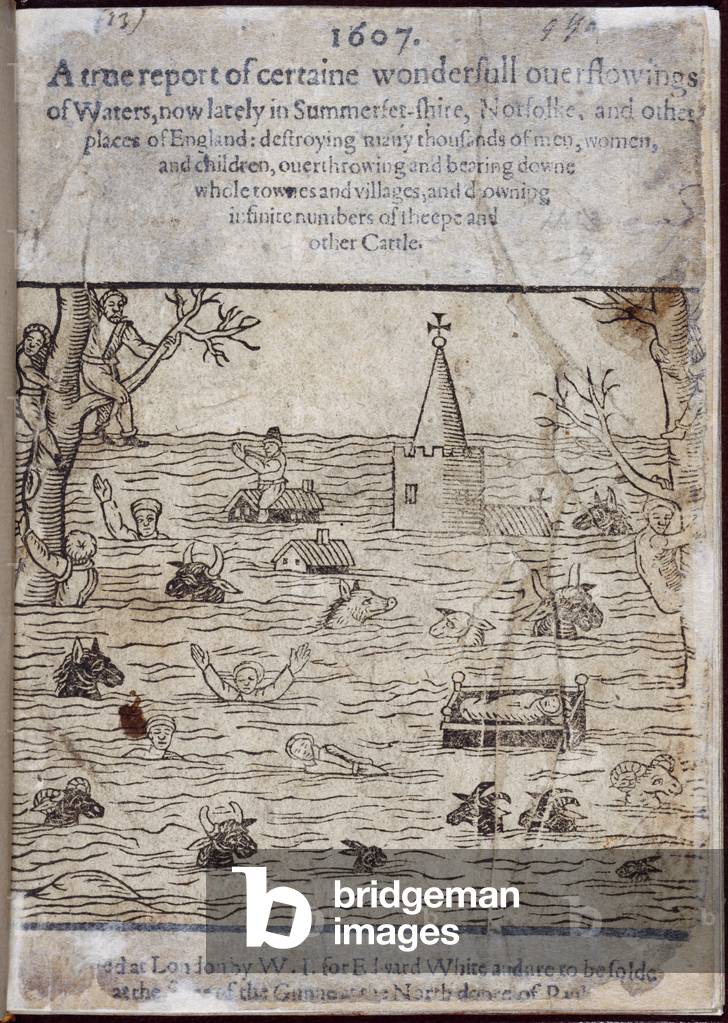 (33)
1607.
A true report of certaine wonderfull ouerflowings
of Waters, now lately in Summerset-shire, Norfolke, and other
places of England: destroying many thousands of men, women,
and children, ouerthrowing and bearing downe
whole townes and villages, and drowning
infinite numbers of sheepe and
other Cattle.
b bridgeman
images
at London by W. I. for Edward White and are to be solde
at the of the Gunne at the North doore of